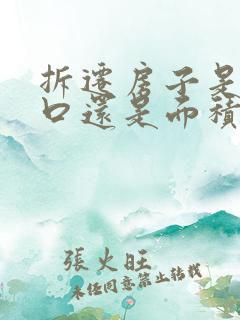 拆遷房子是
口還是面積
張火旺
未经同意禁止转载